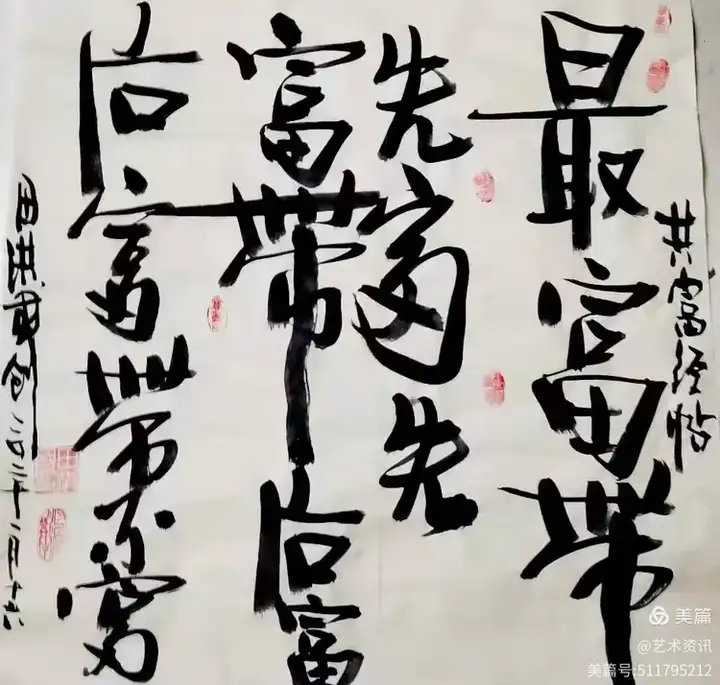 共富经帖
最富带
先富先
富带后富
后富带不穷
田洪君创二〇二十一月十六
美篇
@艺术资讯
美篇号:511795212